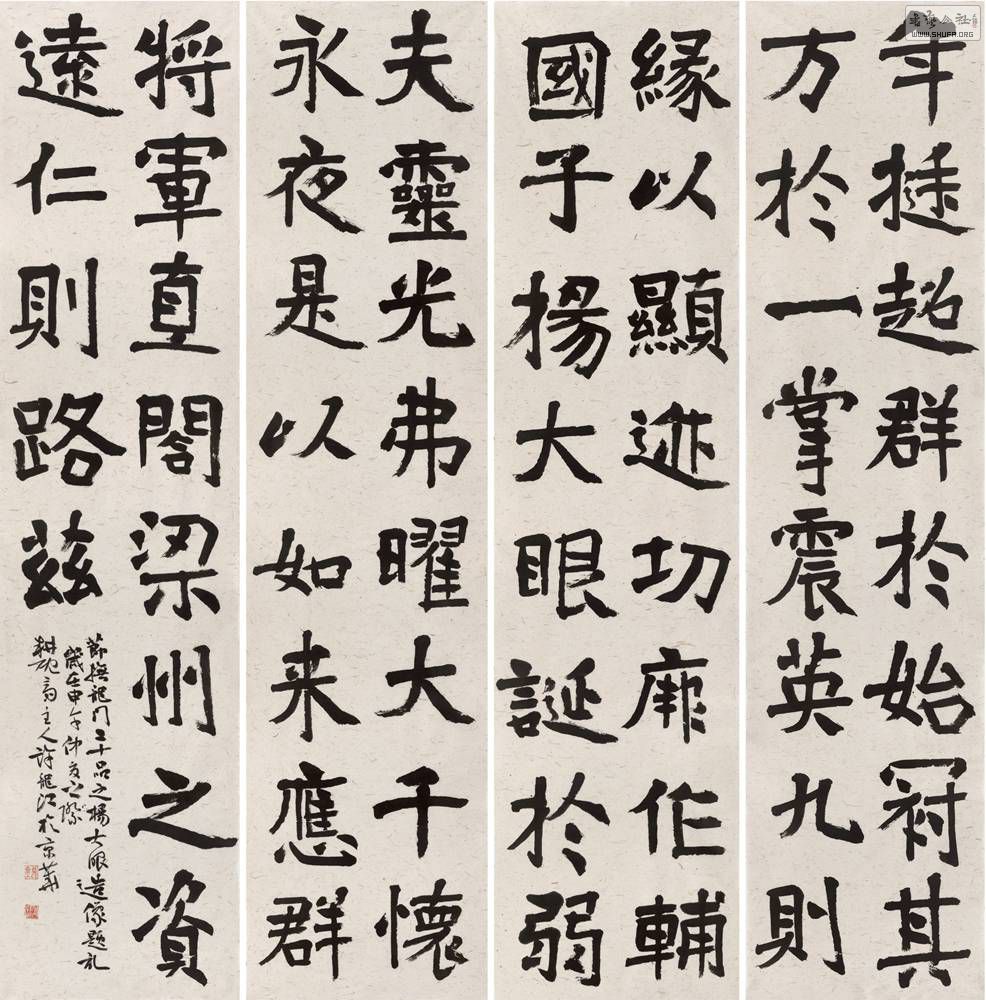 年挺超群於始冠其
方於一掌震英九則
緣以顯迹切作輔
國子楊大眼誕於弱
夫靈光弗曜大千懷
永夜是以如来應群
將軍直閣梁州之資
遠仁則路兹
節撫龍門二十品之楊大眼造像題
歲壬申年仲夏之際
主人許龍江於京華
WWW.SHUFA.ORG